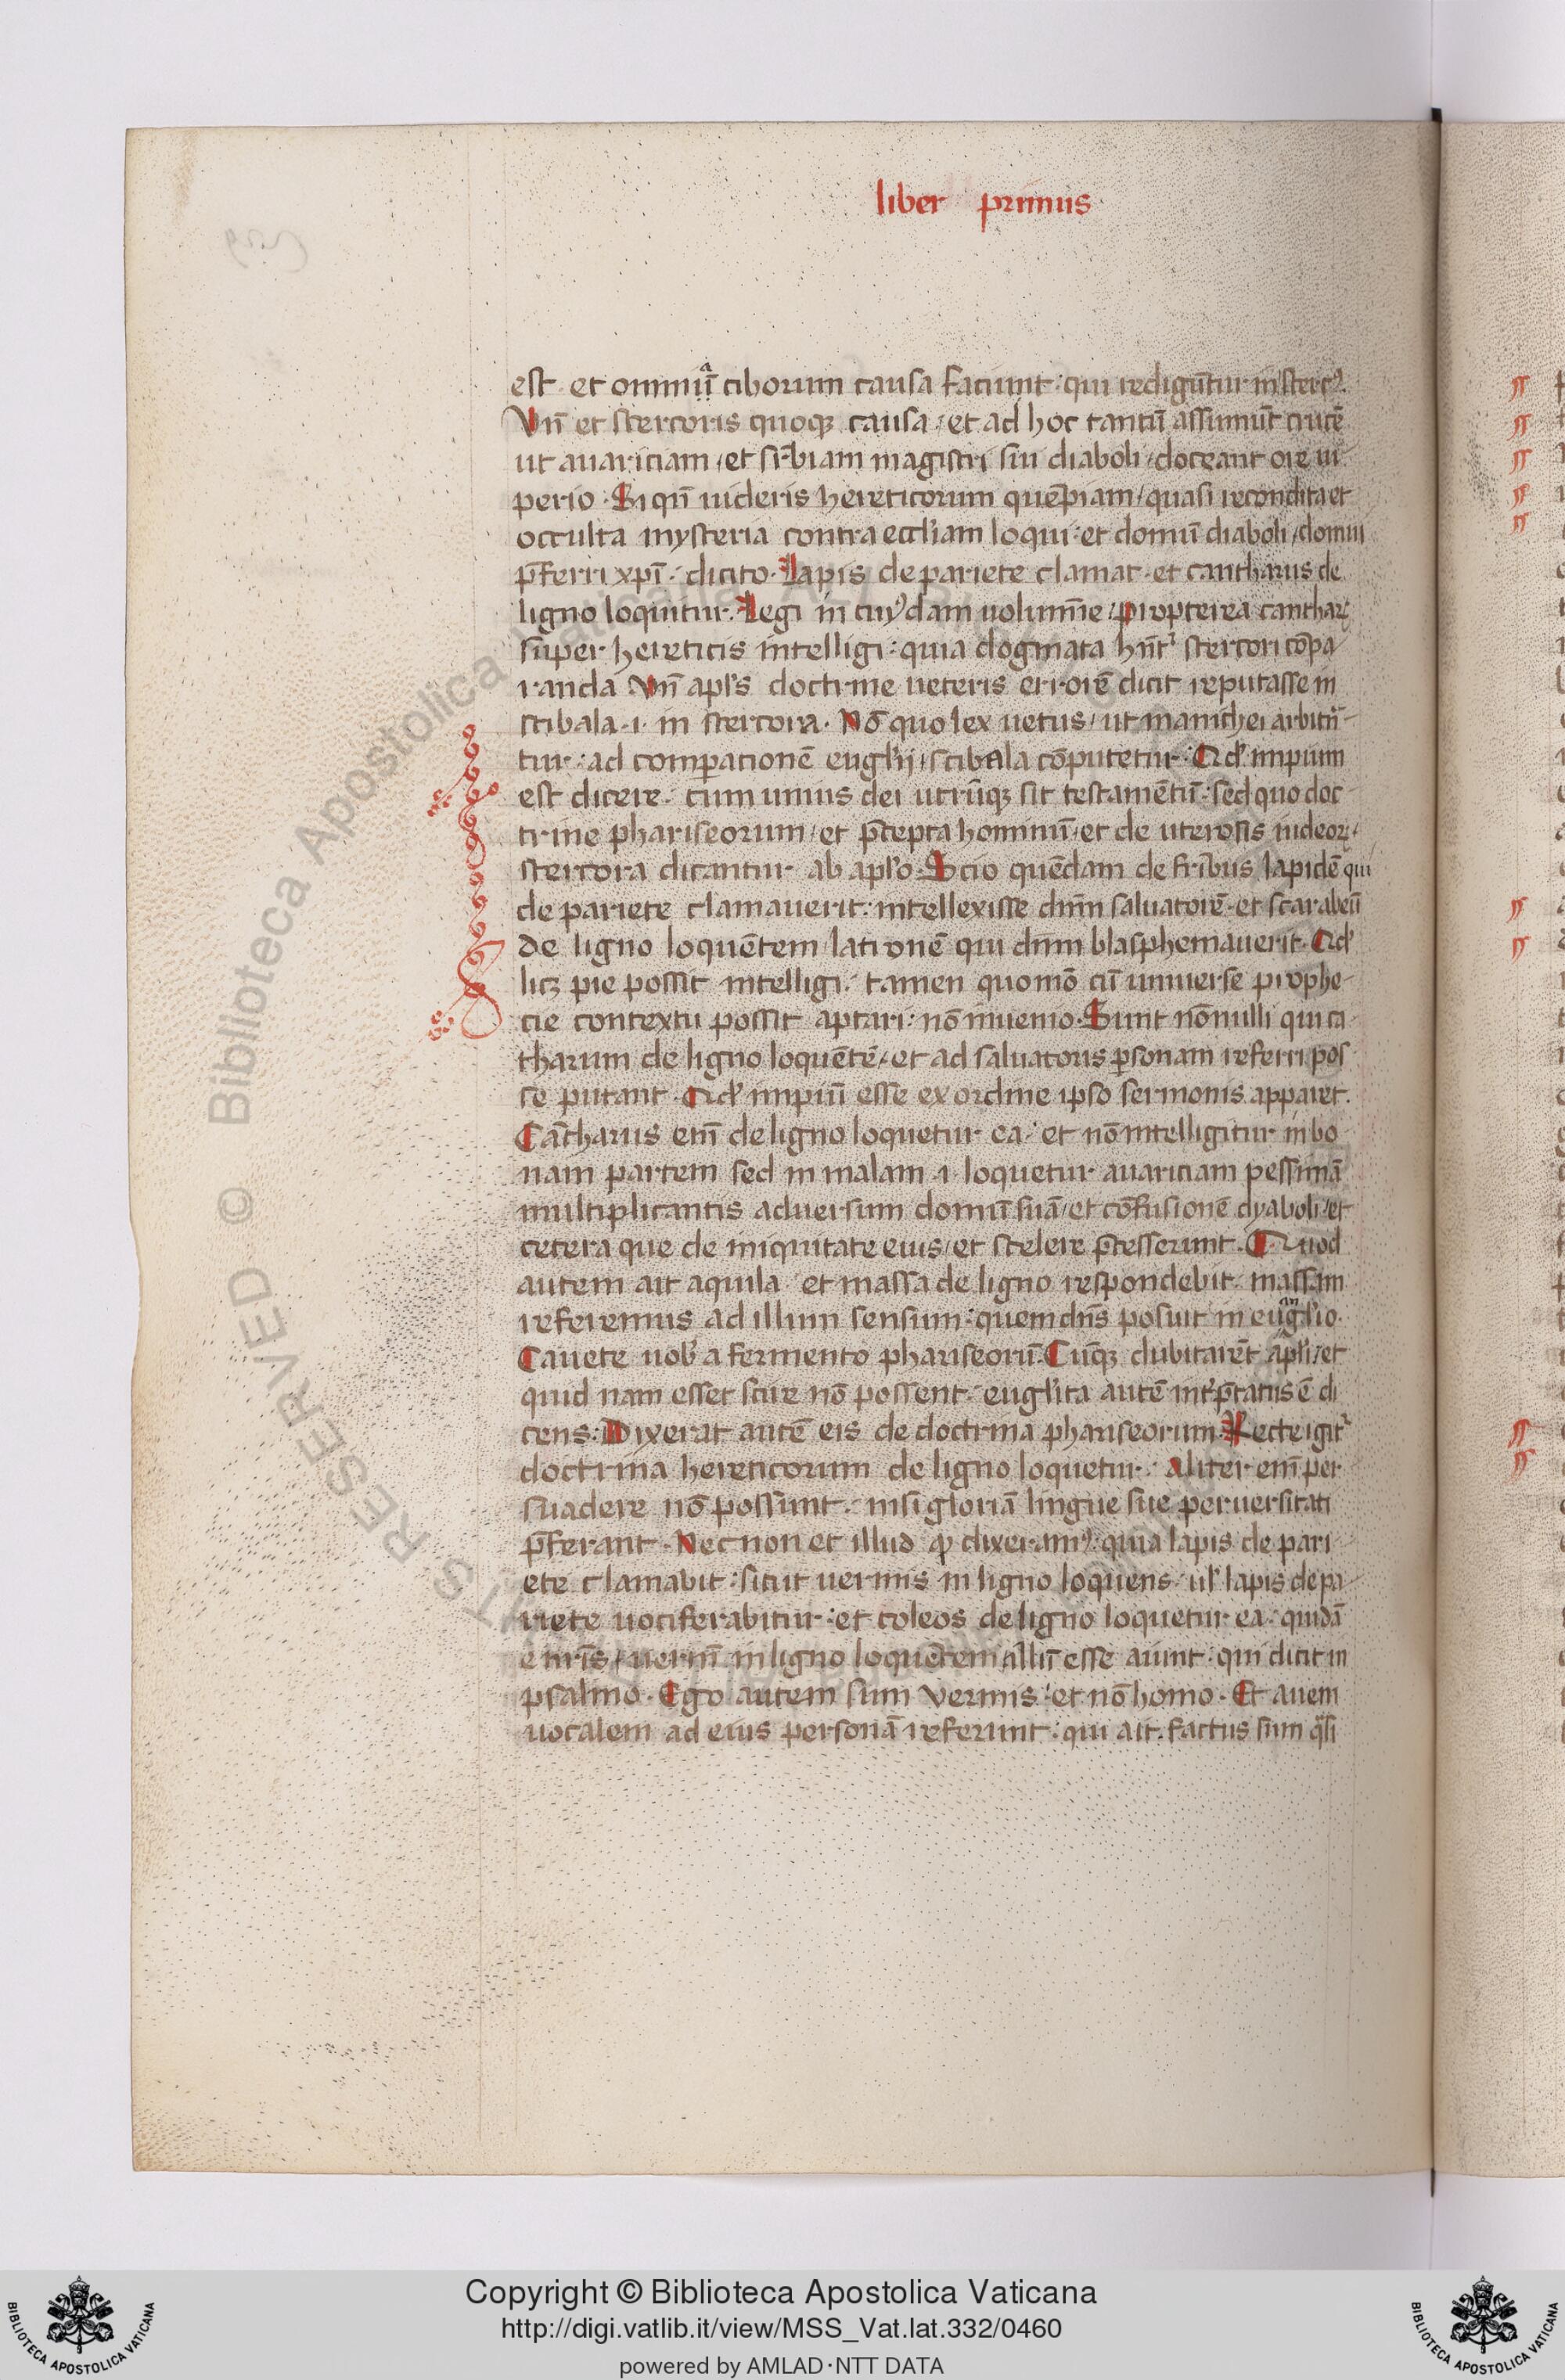 liber primus
est. et omniū ciborum causa faciunt: qui rediguntur in sterc⁹.
Vn̄ et stercoris quoqꝫ causa / et ad hoc tantū assumūt crucē
ut auariciam / et suꝑbiam magistri sui diaboli / doceant ore im-
perio. Si qn̄ uideris hereticorum quēpiam / quasi recondita et
occulta mysteria contra eccl̓iam loqui. et domū diaboli / domui
p̄ferri xp̄i. dicito. Lapis de pariete clamat. et cantharus de
ligno loquitur. Legi in cuiꝰdam uolumīe / propterea canthaꝝ
super hereticis intelligi: quia dogmata hn̄t² stercori cōpa
randa Vn̄ apl̓s doctrine ueteris errorē dicit reputasse in
scibala .i. in stercora. Nō quo lex uetus / ut manichei arbitrā-
tur: ad comꝑationē eugl̓ij / scibala cōputetur. Qd̓ impium
est dicere. cum unius dei utrūqꝫ sit testamētū: sed quo doc
trine phariseorum / et p̄cepta hominū / et deuterosis iudeoꝝ /
stercora dicantur ab apl̓o. Scio quēdam de fr̄ibus lapidē qui
de pariete clamauerit: intellexisse dn̄m saluatorē. et scarabeū
de ligno loquētem / latronē qui dn̄m blasphemauerit. Qd̓
licꝫ pie possit intelligi. tamen quomō cū uniuerse prophe-
cie contextu possit aptari: nō inuenio. Sunt nōnulli qui ca-
tharum de ligno loquētē / et ad saluatoris ꝑsonam referri pos
se putant. Qd̓ impiū esse ex ordine ipso sermonis apparet.
Cātharus em̄ de ligno loquetur ea. et nō intelligitur in bo
nam partem sed in malam .i. loquetur auariciam pessimā
multiplicantis aduersum domū suā / et cōfusionē dyaboli / et
cetera que de iniquitate eius / et scelere p̄cesserunt. Quod
autem ait aquila. et massa de ligno respondebit. massam
referemus ad illum sensum: quem dn̄s posuit in eu͛angl̓io.
Cauete uob̓ a fermento phariseorū. Cūqꝫ dubitarēt apl̓i / et
quid nam esset scire nō possent. eugl̓ista autē int̓p̄tatus ē di
cens: Dixerat autē eis de doctrina phariseorum. Recte igit²
doctrina hereticorum de ligno loquetur. aliter em̄ per
suadere nō possunt. nisi gloriā lingue sue peruersitati
p̄ferant. Nec non et illud ꝙ dixeramꝰ: quia lapis de pari-
ete clamabit: sicut uermis in ligno loquens. ul̓ lapis de pa-
riete uociferabitur: et coleos de ligno loquetur ea. quidā
e nr̄is / uermē in ligno loquētem illū esse aiunt: qui dicit in
psalmo. Ego autem sum vermis: et nō homo. Et auem
uocalem ad eius personā referunt: qui ait. factus sum q̄si
Copyright © Biblioteca Apostolica Vaticana
http://digi.vatlib.it/view/MSS_Vat.lat.332/0460
powered by AMLAD·NTT DATA